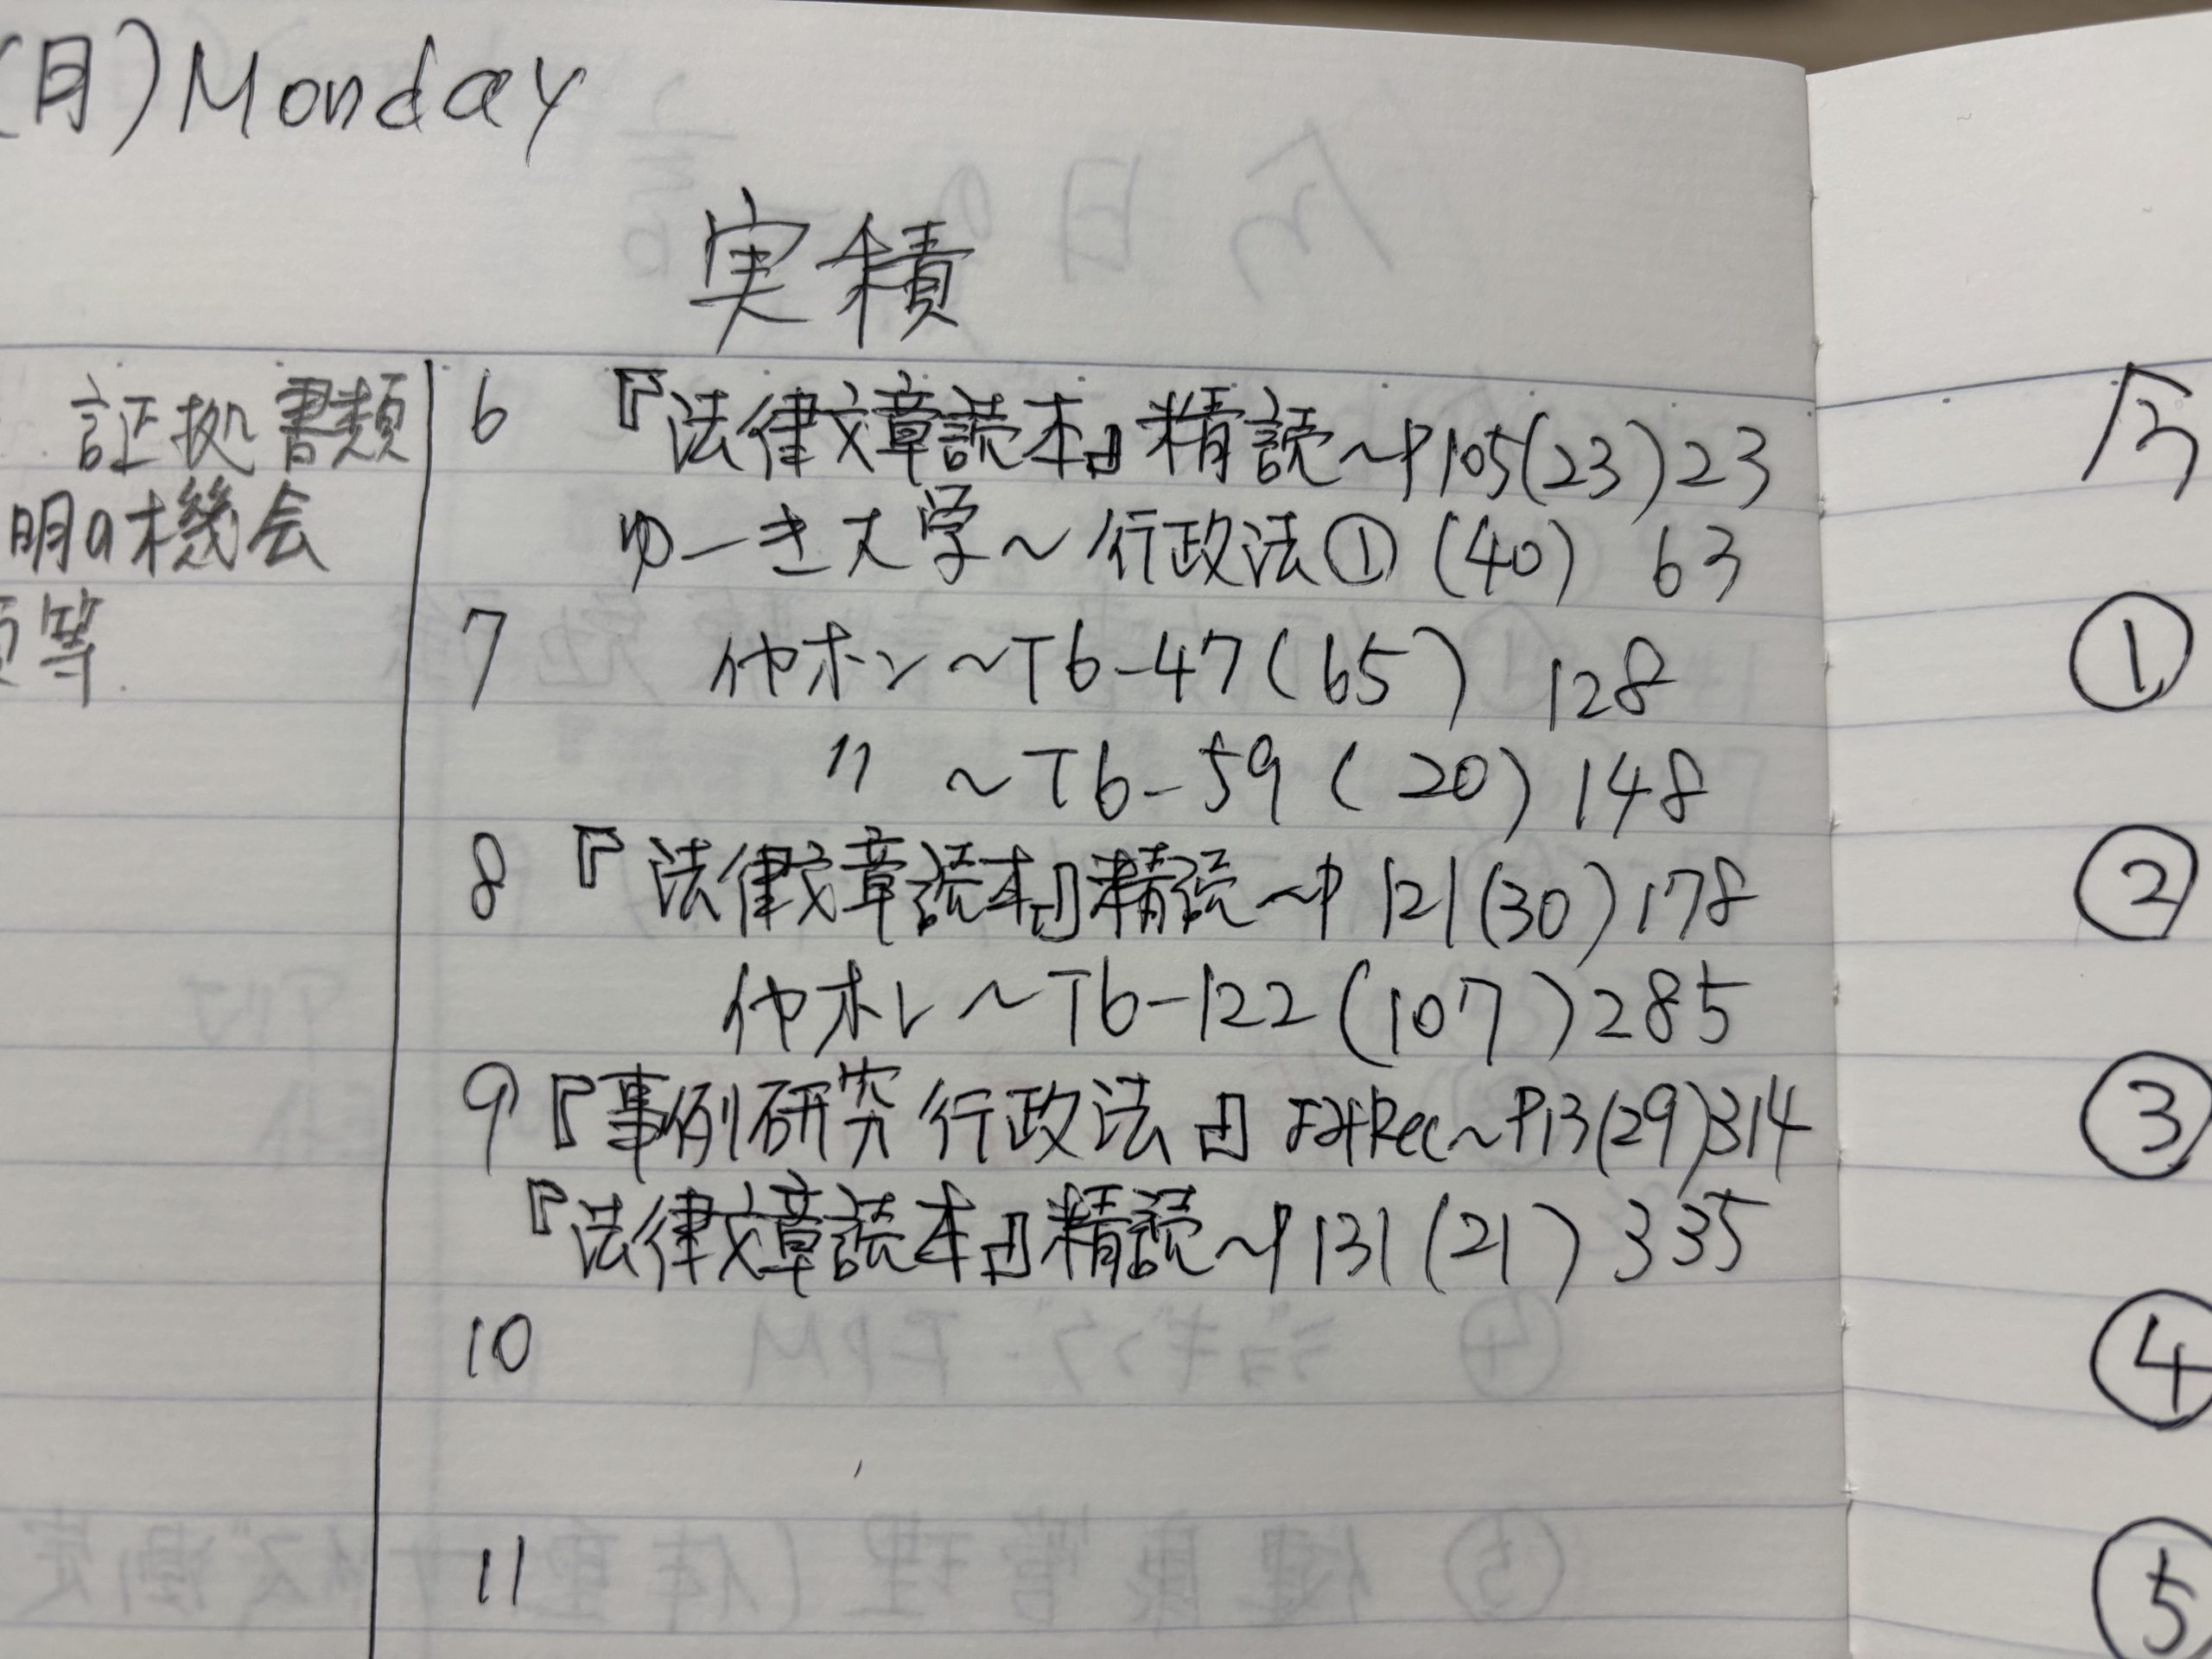 (月) Monday
実積
証拠書類
明の機会
等
6 『法律文章読本』精読～P105(23)23
ゆーき大学～行政法① (40) 63
7 他ホン～T6-47(65) 128
〃 ～T6-59(20)148
8 『法律文章読本』精読～P121(30)178
他ホン～T6-122(107)285
9 『事例研究行政法』 Rec～P13(29)314
『法律文章読本』精読～P131(21)335
10
11
今
①
②
③
④
⑤